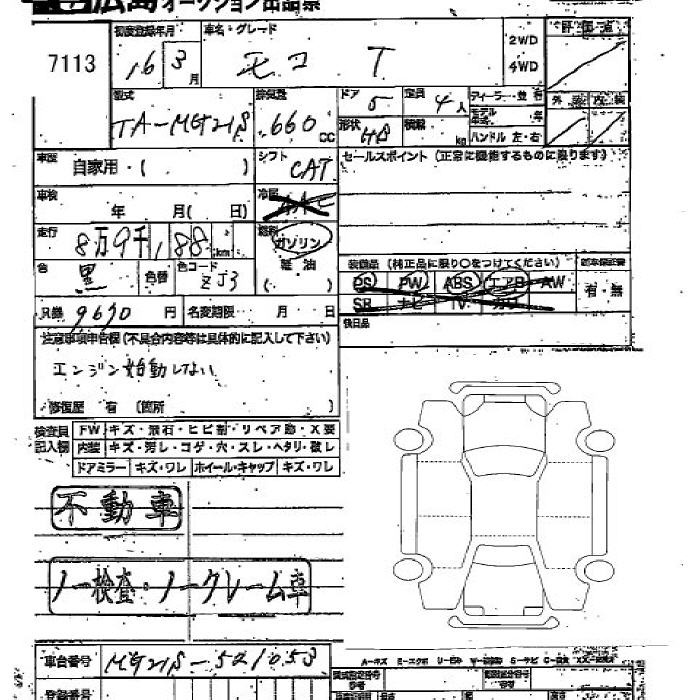 広島オークション出品票
7113
初度登録年月
16 3月
車名・グレード
モコ T
2WD
4WD
評価点
外装 内装
型式
TA-MG21S
排気量
660cc
ドア 5
定員 4人
形状 HB
積載 kg
ディーラー・並行
モデル年式 年
ハンドル 左・右
車歴
自家用・( )
シフト
CAT
セールスポイント (正常に機能するものに限ります)
車検
年 月( 日)
冷房
走行
8万9千188km
燃料
ガソリン
軽油
( )
色
黒
色替
色コード
ZJ3
装備品 (純正品に限り○をつけてください)
PS PW ABS エアB AW
SR ナビ TV カワ
新車保証書
有・無
後日品
R券 9670円
名変期限 月 日
注意事項申告欄(不具合内容等は具体的に記入して下さい)
エンジン始動しない
修復歴 有 (箇所 )
検査員記入欄
FW キズ・飛石・ヒビ割・リペア跡・X要
内装 キズ・汚レ・コゲ・穴・スレ・ヘタリ・破レ
ドアミラー キズ・ワレ ホイール・キャップ キズ・ワレ
不動車
ノー検査・ノークレーム車
車台番号 MG21S-521053
登録番号
A-キズ